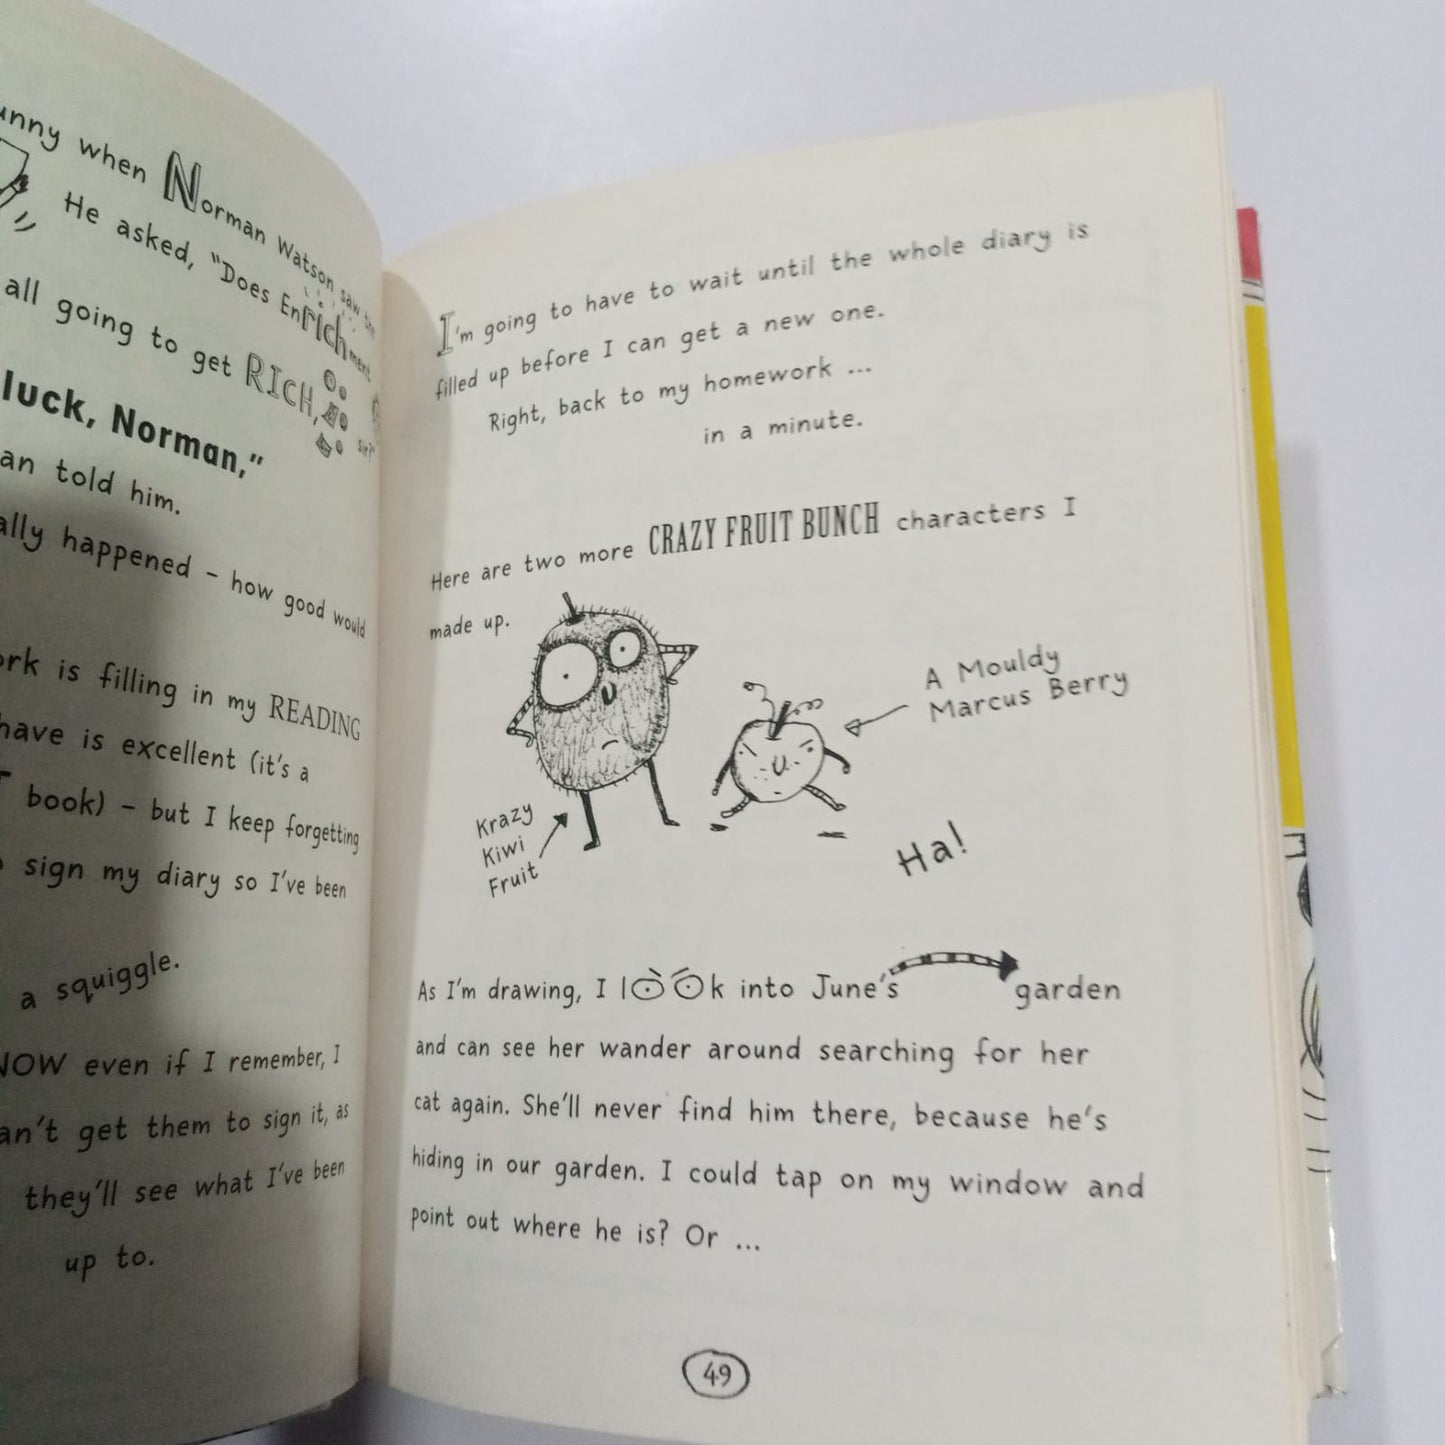 unny when Norman Watson saw the
He asked, "Does Enrichment
all going to get RICH, sir?"
luck, Norman,"
an told him.
ally happened – how good would
ork is filling in my READING
have is excellent (it's a
book) – but I keep forgetting
sign my diary so I've been
a squiggle.
NOW even if I remember, I
an't get them to sign it, as
they'll see what I've been
up to.
I'm going to have to wait until the whole diary is
filled up before I can get a new one.
Right, back to my homework ...
in a minute.
Here are two more CRAZY FRUIT BUNCH characters I
made up.
A Mouldy
Marcus Berry
Krazy
Kiwi
Fruit
Ha!
As I'm drawing, I look into June's garden
and can see her wander around searching for her
cat again. She'll never find him there, because he's
hiding in our garden. I could tap on my window and
point out where he is? Or ...
49